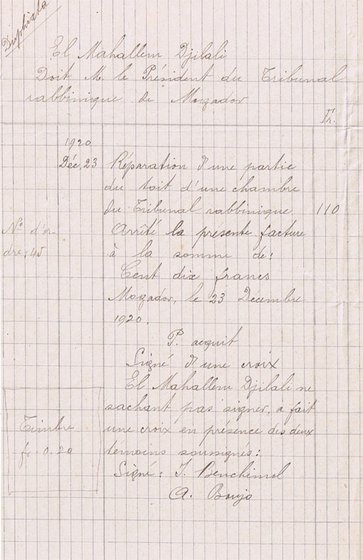 Duplicata
El Mahallem Djilali
Doit M. le Président du Tribunal
rabbinique de Mogador
Fr.
1920
Déc. 23 Réparation d'une partie
du toit d'une chambre
du Tribunal rabbinique 110
Arrêté la présente facture
N° d'or
dre: 45 à la somme de:
Cent dix francs
Mogador, le 23 Décembre
1920.
P. acquit
Signé d'une croix
El Mahallem Djilali ne
sachant pas signer, a fait
une croix en présence des deux
témoins soussignés:
Timbre
fr 0.20
Signé: J. Benchimol
A.